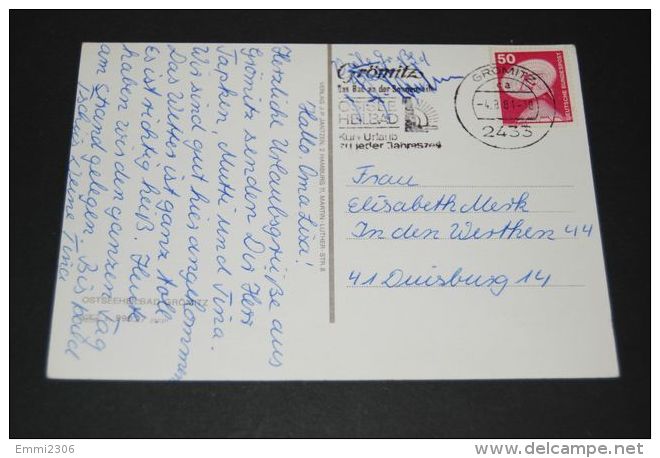 Hallo Oma Lisa!
Herzliche Urlaubsgrüße aus
Grömitz senden Dir Herr
Tapken, Mutti und Tina.
Wir sind gut hier angekommen
Das Wetter ist ganz toll
Es ist richtig heiß. Heute
haben wir den ganzen Tag
am Strand gelegen. Bis bald
Deine Tina
OSTSEEHEILBAD GRÖMITZ
VERLAG J.P. JANTZEN, 2 HAMBURG 11, MARTIN-LUTHER-STR. 8
Grömitz
Das Bad an der Sonnenseite
OSTSEE
HEILBAD
Kur + Urlaub
zu jeder Jahreszeit
GRÖMITZ
ca
-4.8.81-18
2433
50
DEUTSCHE BUNDESPOST
Frau
Elisabeth Merk
In den Westhen 44
41 Duisburg 14
Emmi2306
www.delcampe.net